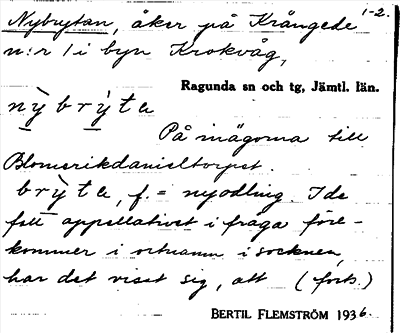 Nybrytan, åker på Krångede 1-2.
n:r 1 i byn Krokvåg,
Ragunda sn och tg, Jämtl. län.
nỳbrỳta
På inägorna till
Blomerikdanieltorpet.
brỳta, f. = nyodling. I de
fall appellativet i fråga före-
kommer i ortnamn i socknen,
har det visat sig, att (forts.)
BERTIL FLEMSTRÖM 1936.